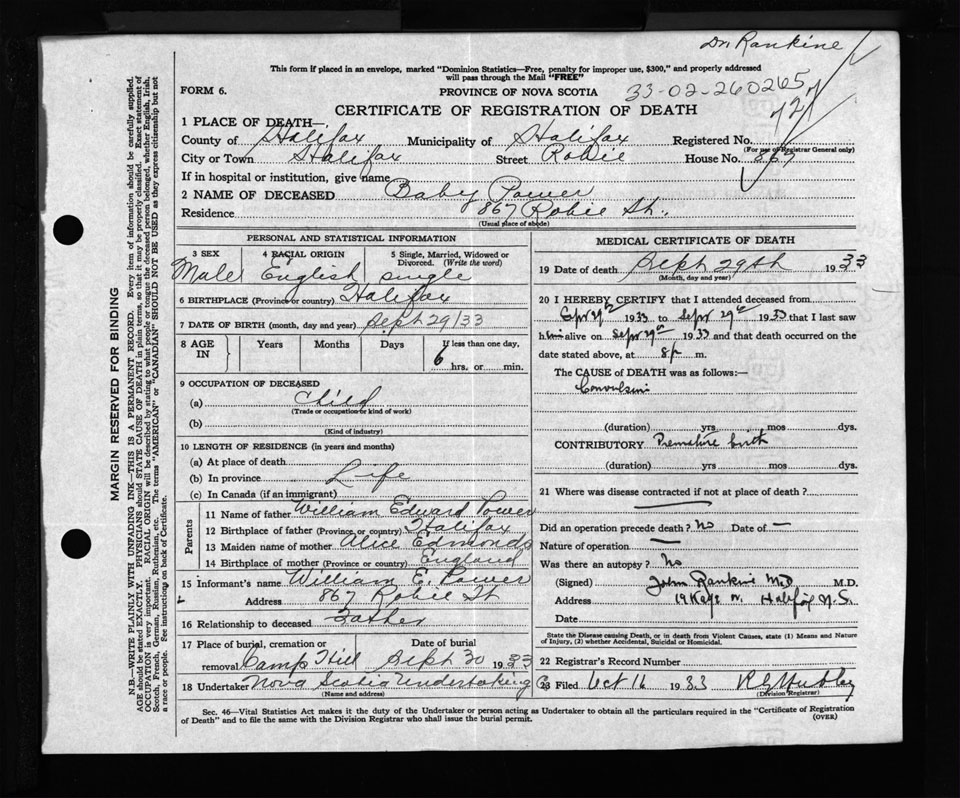 Dr Rankine
This form if placed in an envelope, marked "Dominion Statistics—Free, penalty for improper use, $300," and properly addressed
will pass through the Mail "FREE"
FORM 6.
PROVINCE OF NOVA SCOTIA
33-02-260265
CERTIFICATE OF REGISTRATION OF DEATH
727
1 PLACE OF DEATH—
County of Halifax Municipality of Halifax Registered No.
(For use of Registrar General only)
City or Town Halifax Street Robie House No. 867
If in hospital or institution, give name
2 NAME OF DECEASED Baby Power
Residence 867 Robie St.,
(Usual place of abode)
PERSONAL AND STATISTICAL INFORMATION
3 SEX 4 RACIAL ORIGIN 5 Single, Married, Widowed or Divorced. (Write the word)
Male English single
6 BIRTHPLACE (Province or country) Halifax
7 DATE OF BIRTH (month, day and year) Sept 29/33
8 AGE IN Years Months Days If less than one day,
6 hrs. or min.
9 OCCUPATION OF DECEASED
(a) Child
(Trade or occupation or kind of work)
(b)
(Kind of industry)
10 LENGTH OF RESIDENCE (in years and months)
(a) At place of death
(b) In province Life
(c) In Canada (if an immigrant)
Parents
11 Name of father William Edward Power
12 Birthplace of father (Province or country) Halifax
13 Maiden name of mother Alice Edmonds
14 Birthplace of mother (Province or country) England
15 Informant's name William E. Power
Address 867 Robie St
16 Relationship to deceased Father
17 Place of burial, cremation or Date of burial
removal Camp Hill Sept 30 1933
18 Undertaker Nova Scotia Undertaking Co
(Name and address)
MEDICAL CERTIFICATE OF DEATH
19 Date of death Sept 29th 1933
(Month, day and year)
20 I HEREBY CERTIFY that I attended deceased from
1933 to Sepr 29th 1933 that I last saw
him alive on Sepr 29th 1933 and that death occurred on the
date stated above, at 8 p m.
The CAUSE of DEATH was as follows:—
(duration) yrs. mos dys.
CONTRIBUTORY Premature birth
(duration) yrs mos dys.
21 Where was disease contracted if not at place of death?
Did an operation precede death? No Date of —
Nature of operation —
Was there an autopsy? No
(Signed) John Rankine M.D M.D.
Address Halifax N.S.
Date
State the Disease causing Death, or in death from Violent Causes, state (1) Means and Nature
of Injury, (2) whether Accidental, Suicidal or Homicidal.
22 Registrar's Record Number
23 Filed Oct 16 1933
(Division Registrar)
Sec. 46—Vital Statistics Act makes it the duty of the Undertaker or person acting as Undertaker to obtain all the particulars required in the "Certificate of Registration
of Death" and to file the same with the Division Registrar who shall issue the burial permit.
(OVER)
MARGIN RESERVED FOR BINDING
N.B.—WRITE PLAINLY WITH UNFADING INK—THIS IS A PERMANENT RECORD. Every item of information should be carefully supplied.
AGE should be stated EXACTLY. PHYSICIANS should STATE CAUSE OF DEATH in plain terms, so that it may be properly classified. Exact statement of
OCCUPATION is very important. RACIAL ORIGIN will be described by stating to what people or tongue the deceased person belonged, whether English, Irish,
Scotch, French, German, Russian, Ruthenian, etc. The terms "AMERICAN" or "CANADIAN" SHOULD NOT BE USED as they express citizenship but not
a race or people. See instructions on back of Certificate.